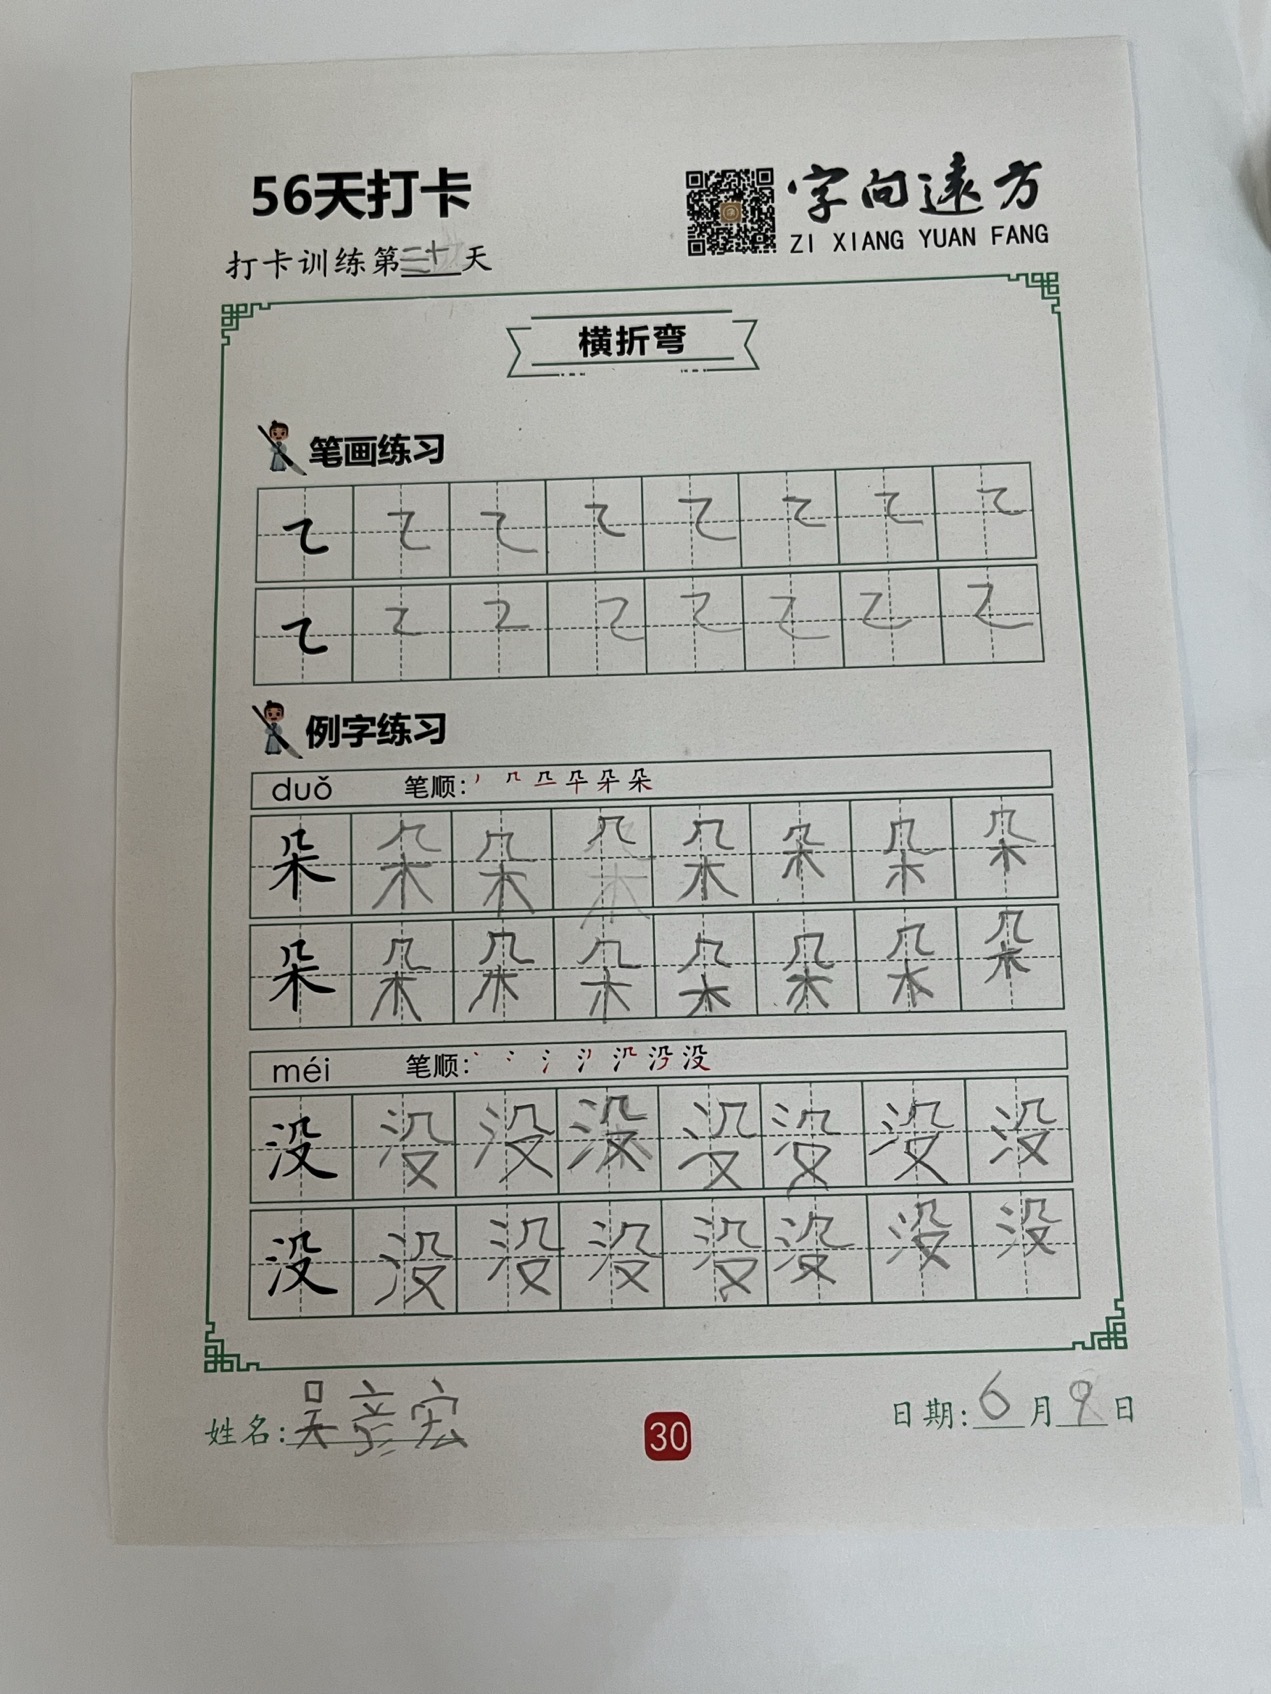 56天打卡
字向遠方
ZI XIANG YUAN FANG
打卡训练第三十天
横折弯
笔画练习
例字练习
duǒ 笔顺:
朵 朵 朵 朵 朵 朵 朵 朵
朵 朵 朵 朵 朵 朵 朵 朵
méi 笔顺:
没 没 没 没 没 没 没 没
没 没 没 没 没 没 没 没
姓名:吴彦宏
30
日期:6月9日